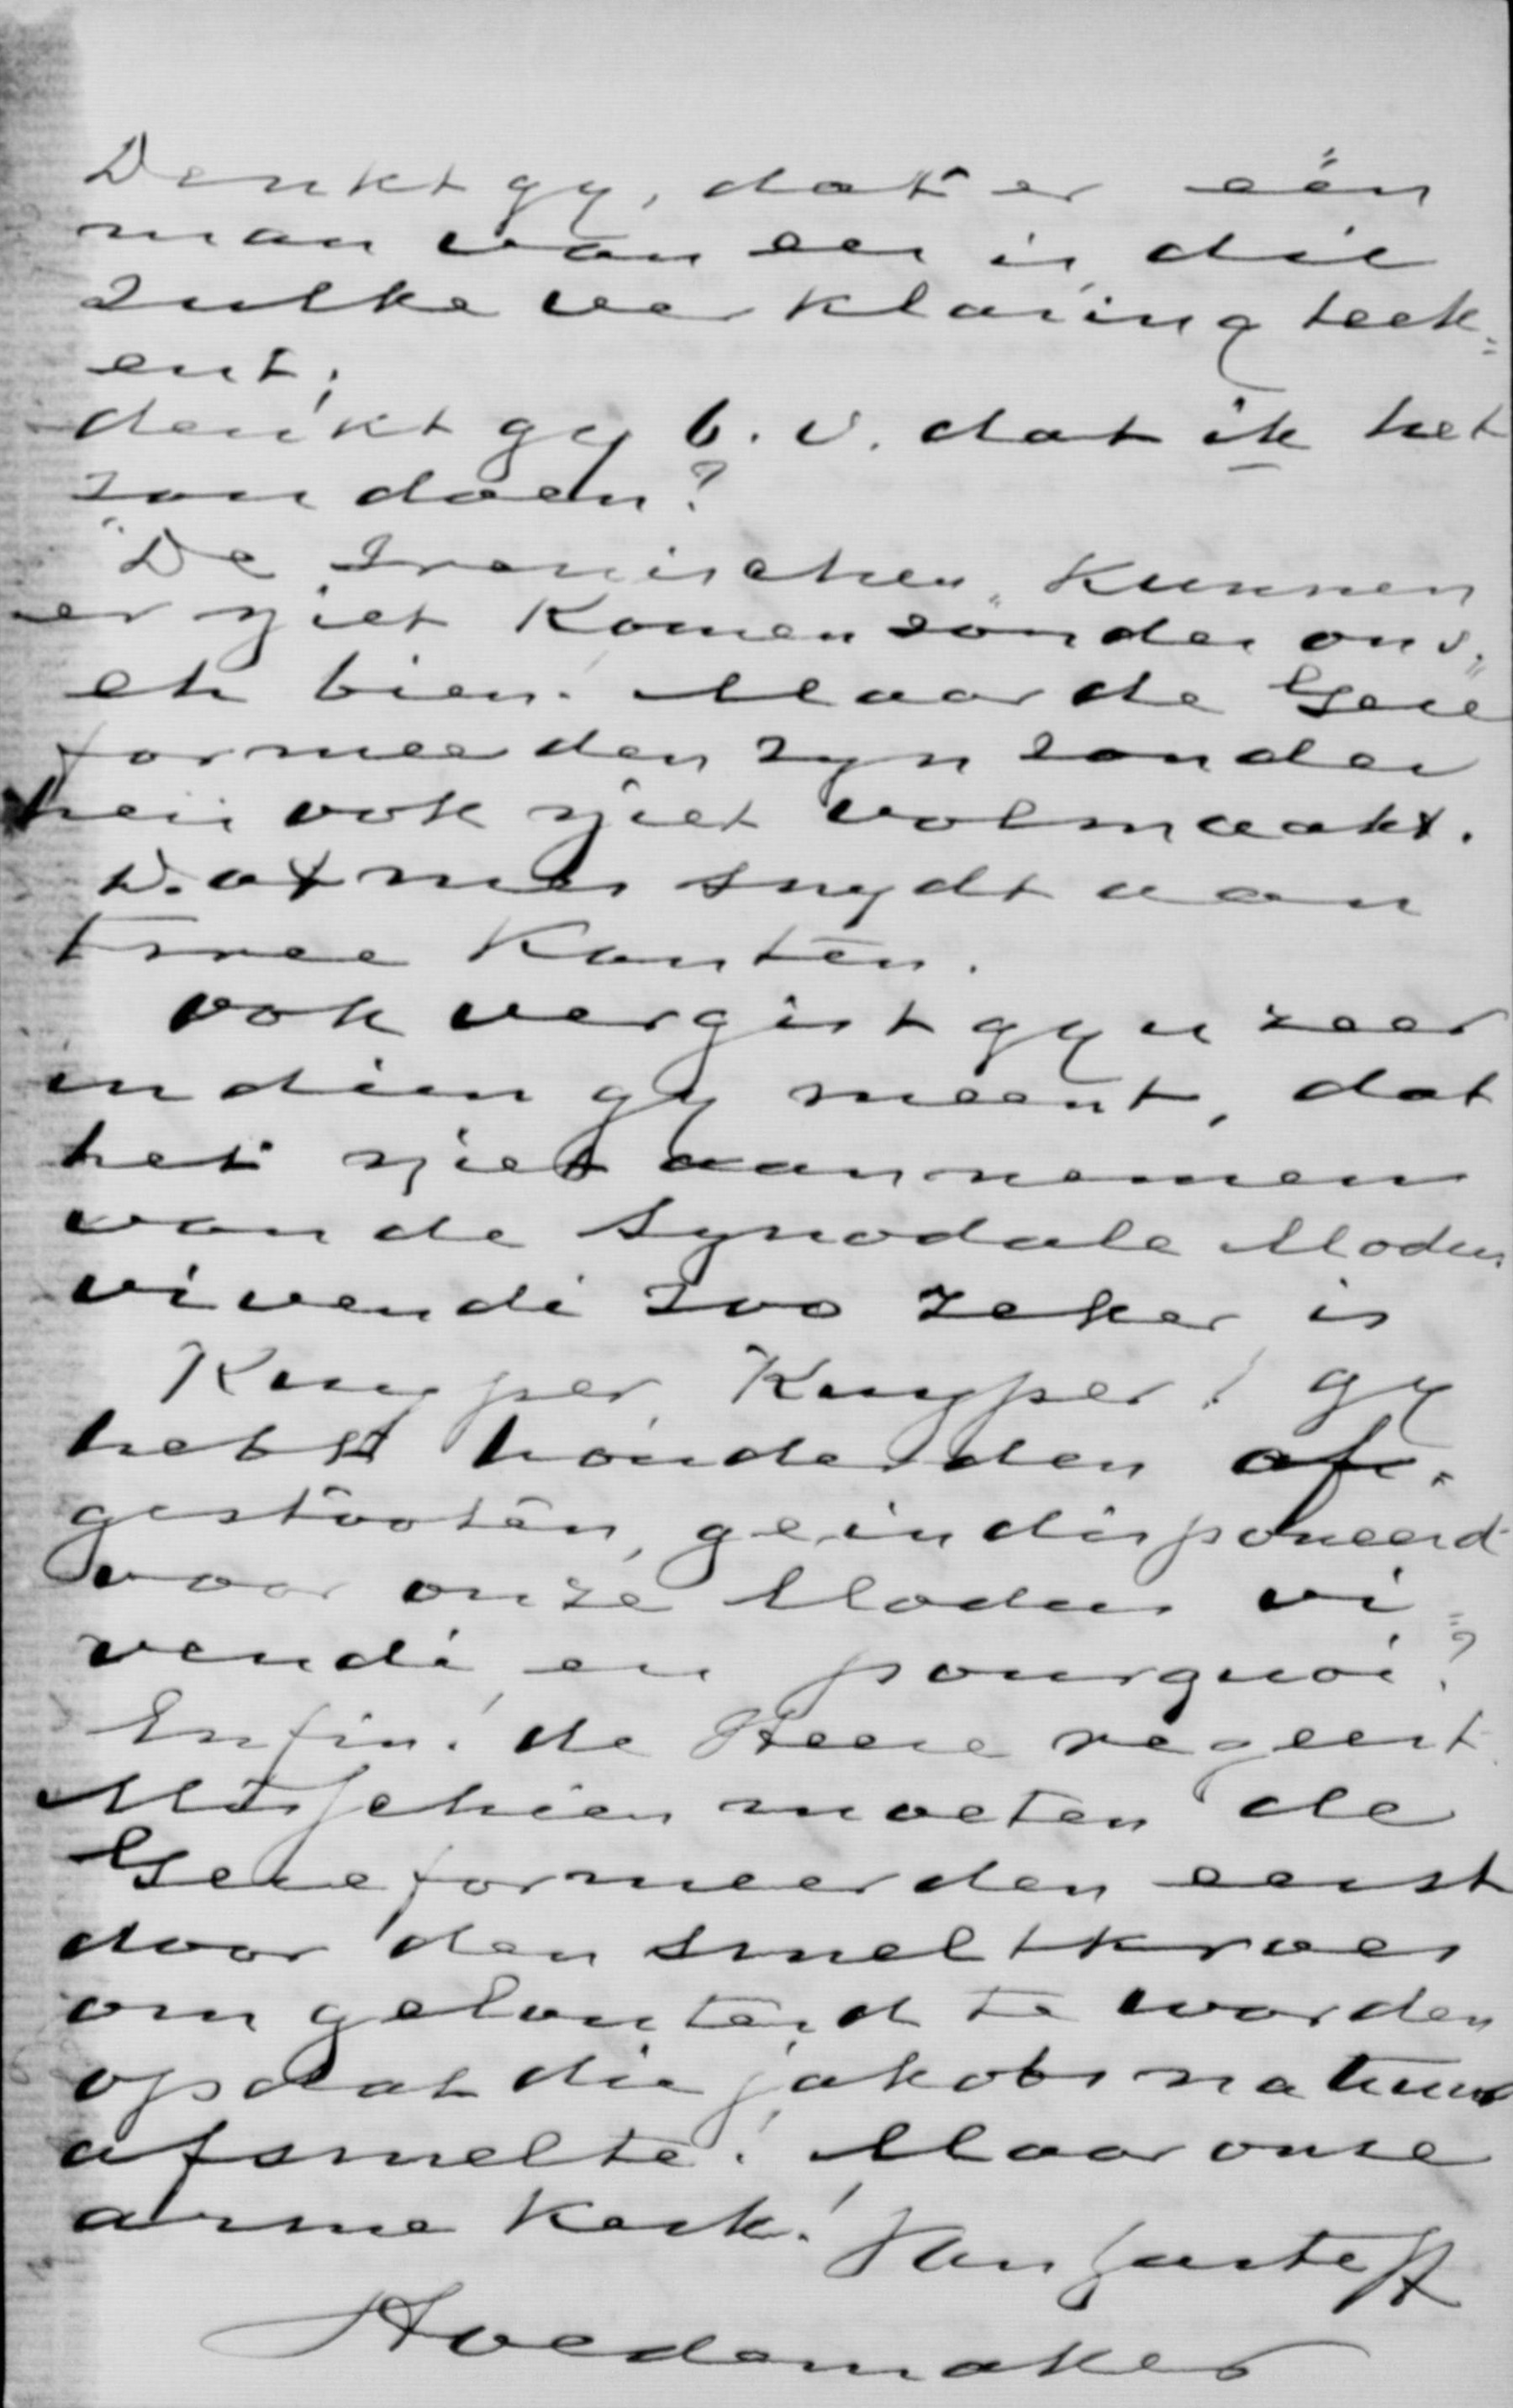 Denkt gy, dat er één
man van eer is, die
zulke verklaring teek=
ent;
denkt gy b.v. dat ik het
zou doen?
"De Irenischen" kunnen
er niet komen zonder ons"
eh bien! Maar de Gere
formeerden zyn zonder
hen ook niet volmaakt.
Dat mes snydt van
twee kanten.
Ook vergist gy u zeer
indien gy meent, dat
het niet aannemen
van de Synodale Modus
vivendi zoo zeker is
Kuyper, Kuyper! gy
hebt honderden af=
gestooten, geindisponeerd
voor onze Modus vi=
vendi en pourquoi?
Enfin! de Heere regeert
Misschien moeten de
Gereformeerden eerst
door den smeltkroes
om gelouterd te worden
opdat die jakobs natuur
afsmelte! Maar onze
arme kerk!
Hoedemaker